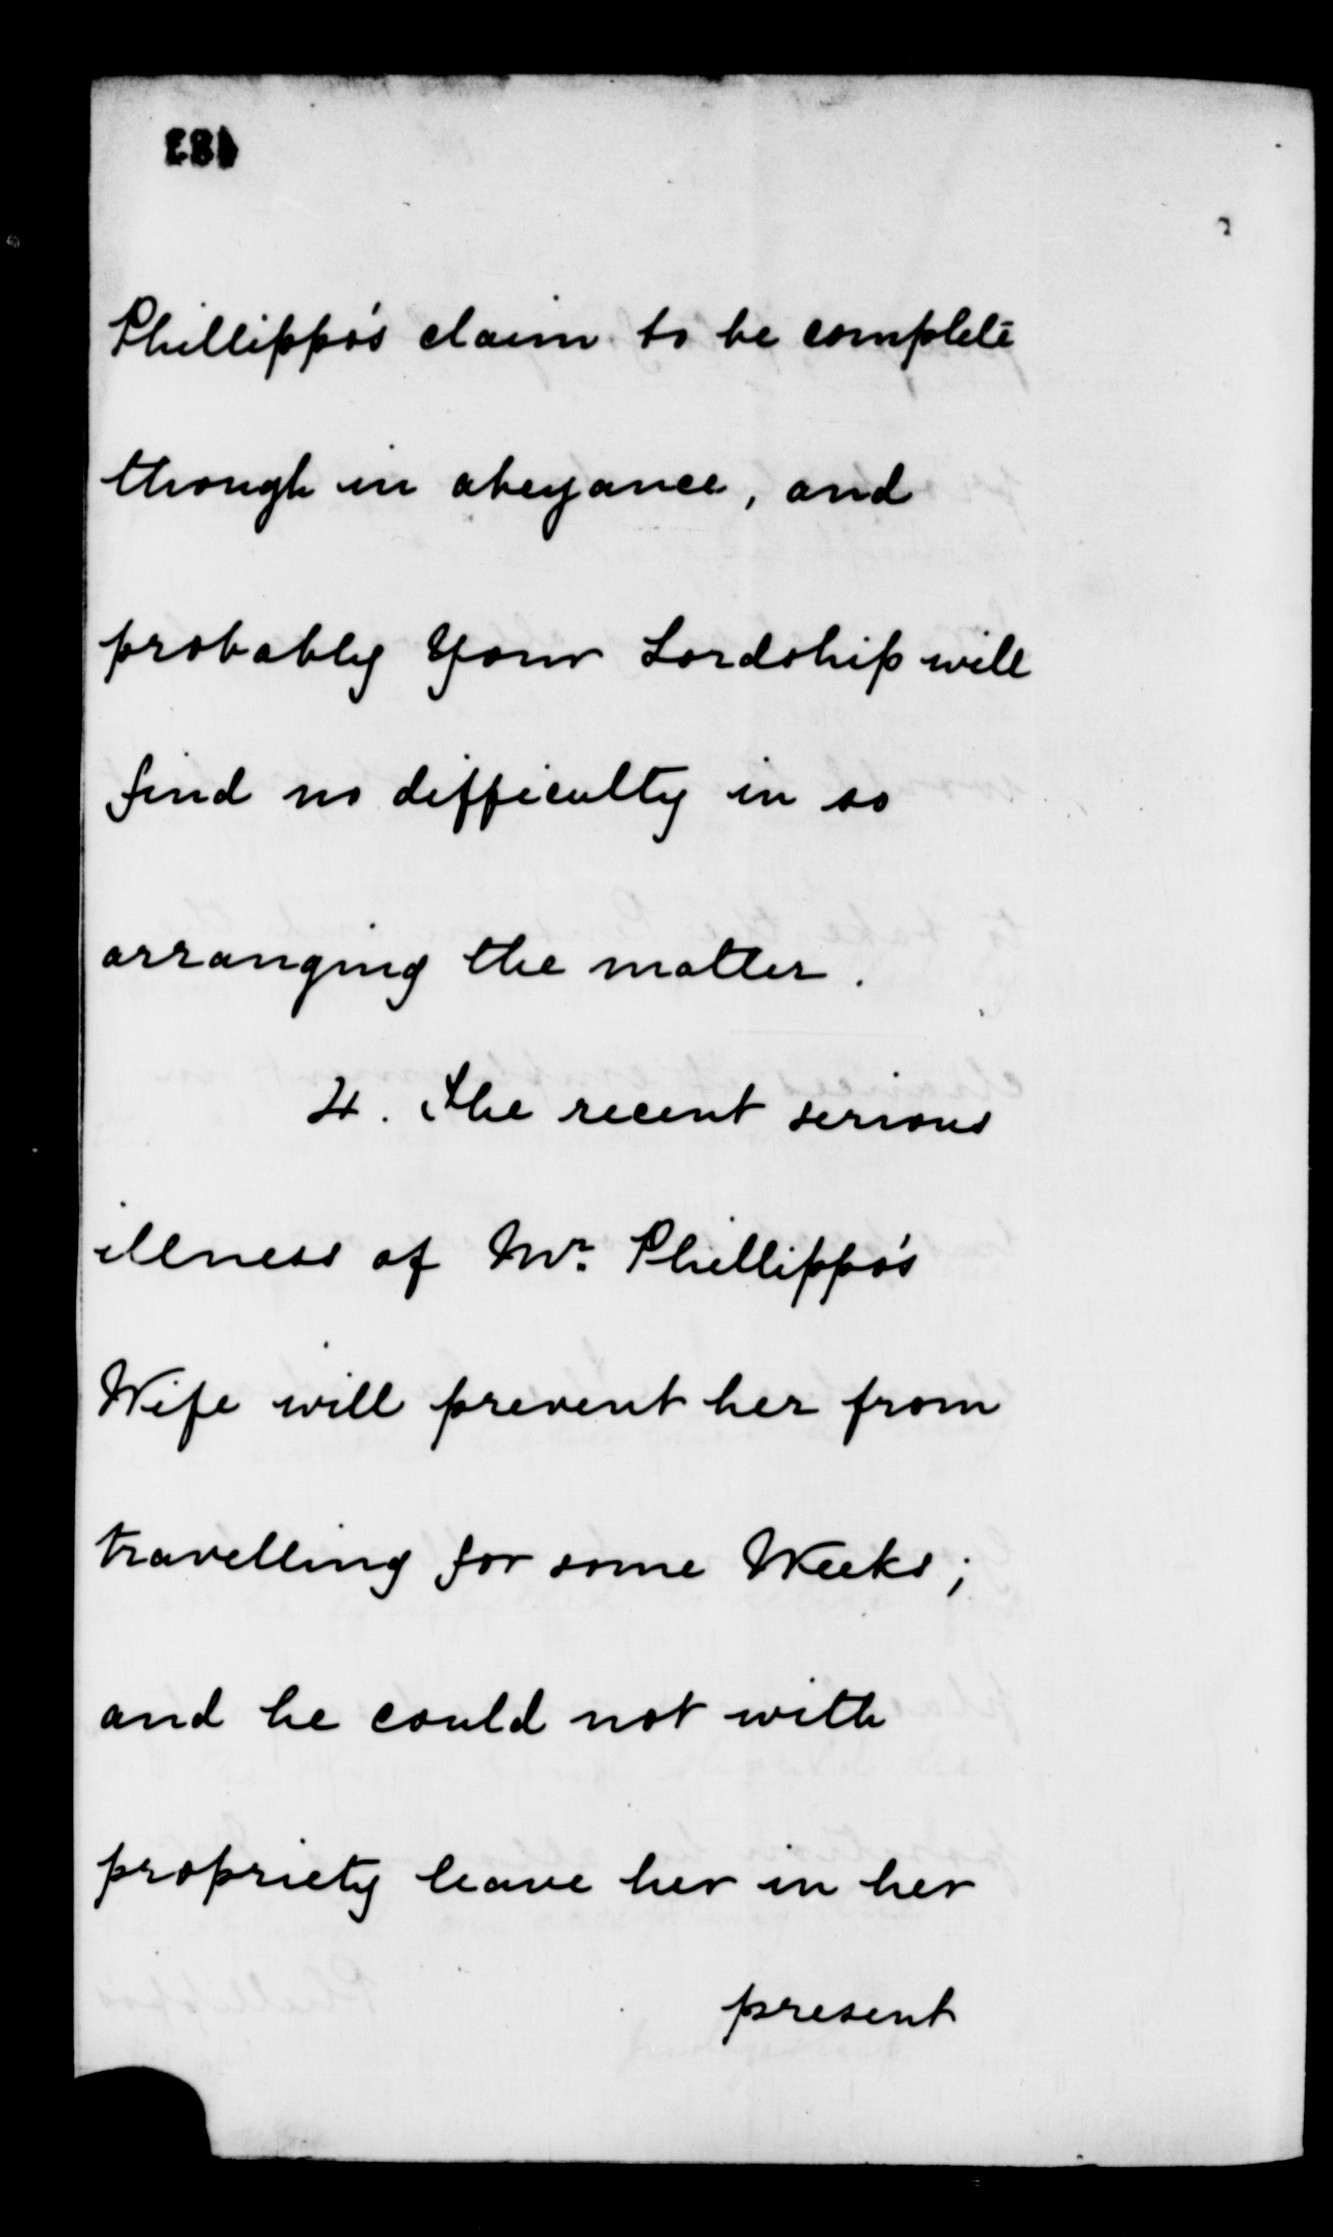 Phillippo's claim to be complete
though in abeyance, and
probably Your Lordship will
find no difficulty in so
arranging the matter.
4. The recent serious
illness of Mr. Phillippo's
Wife will prevent her from
travelling for some Weeks;
and he could not with
propriety leave her in her
present